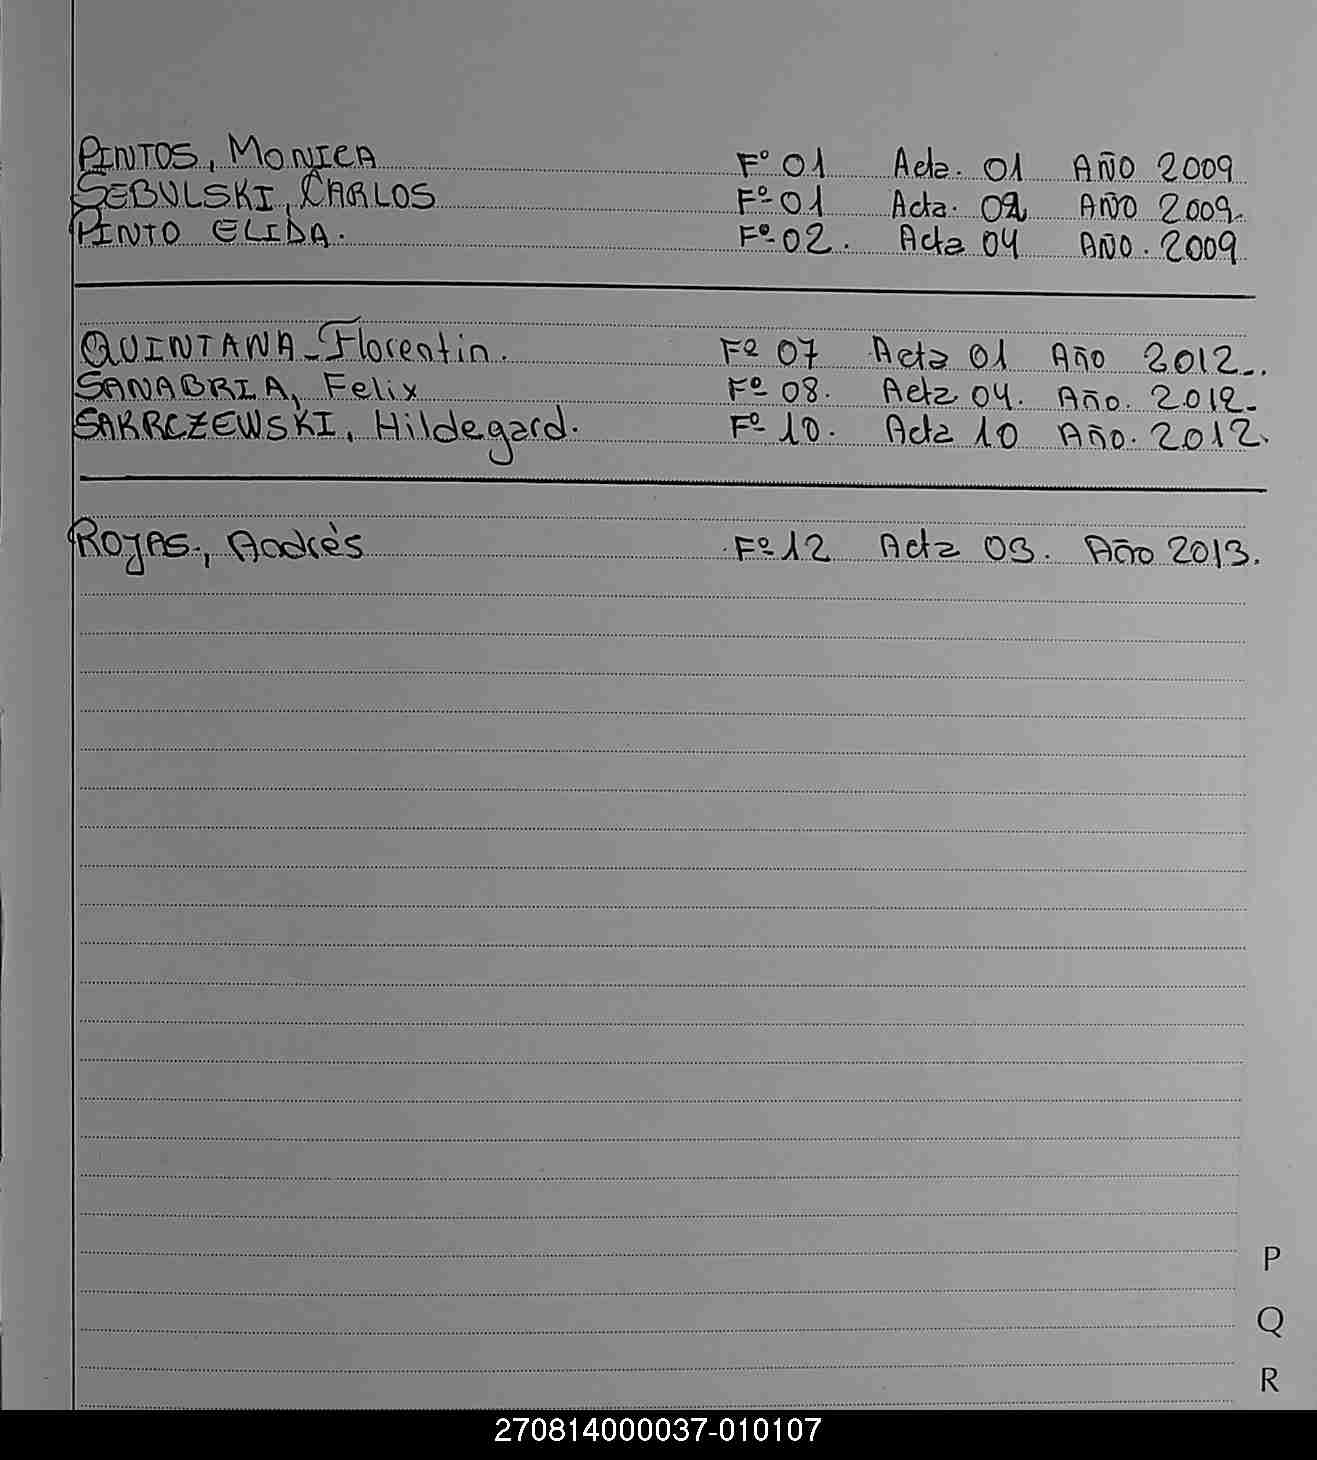 PINTOS, MONICA Fº 01 Acta. 01 AÑO 2009
SEBULSKI, CARLOS Fº 01 Acta. 02 AÑO 2009.
PINTO ELIDA. Fº 02. Acta 04 AÑO. 2009
QUINTANA - Florentin. Fº 07 Acta 01 Año 2012.
SANABRIA, Felix Fº 08. Acta 04. Año. 2012.
SAKRCZEWSKI, Hildegard. Fº 10. Acta 10 Año. 2012.
ROJAS, Andrés Fº 12 Acta 03. Año 2013.
P
Q
R
270814000037-010107